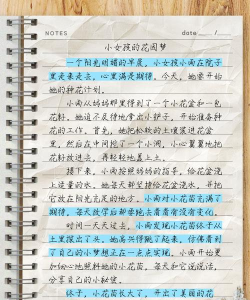 NOTES
date / /
小女孩的花园梦
一个阳光明媚的早晨，小女孩小雨在院子
里走来走去，心里满是期待。今天，她要开始
她的种花计划。
小雨从妈妈那里得到了一个小花盆和一包
花籽。她迫不及待地拿出小铲子，开始准备种
花的工作。首先，她把松软的土壤装进花盆
里，然后在中间挖了一个小洞，小心翼翼地把
花籽放进去，再轻轻地盖上土。
接下来，小雨按照妈妈的指导，给花盆浇
上适量的水。她每天都坚持给花盆浇水，并把
它放在阳光充足的地方。小雨对小花苗充满了
期待，每天放学后都要跑去看看有没有变化。
时间一天天过去，小雨发现小花苗终于从
土里探出了头。她高兴得跳了起来，仿佛看到
了自己的小梦想正在一点点实现。小雨开始更
加细心地照料她的小花苗，每天和它说说话，
分享自己的小秘密。
终于，小花苗长大了，开出了美丽的花